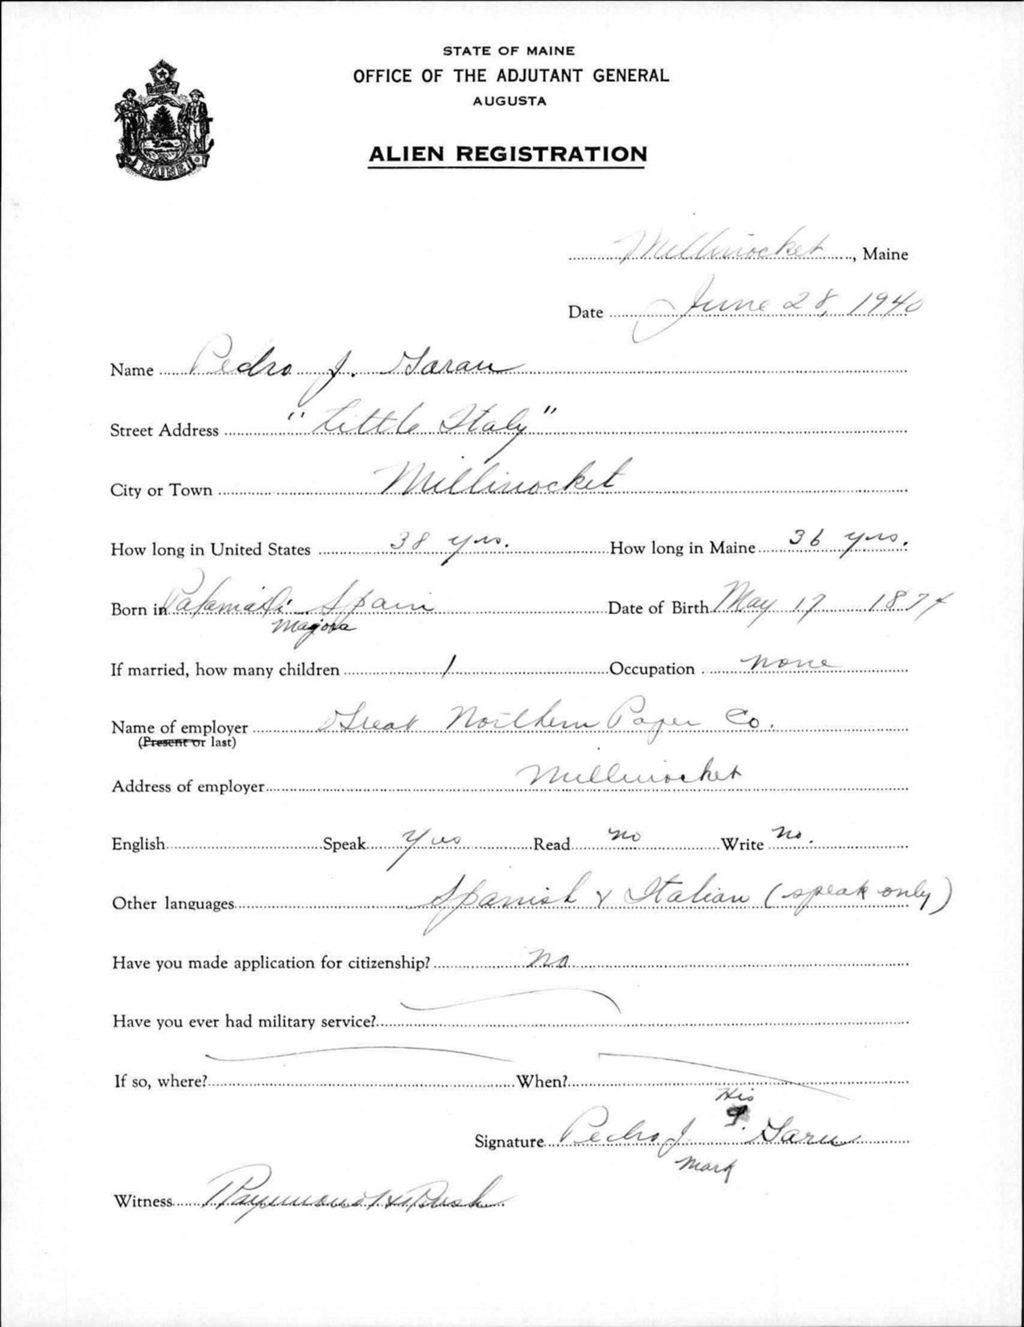 STATE OF MAINE
OFFICE OF THE ADJUTANT GENERAL
AUGUSTA
ALIEN REGISTRATION
MAINE
Millinocket, Maine
Date June 28, 1940
Name Pedro J. Garau
Street Address "Little Italy"
City or Town Millinocket
How long in United States 38 yrs. How long in Maine 36 yrs.
Born in Spain Date of Birth May 17 1874
Majora
If married, how many children 1 Occupation none
Name of employer Great Northern Paper Co.
(Present or last)
Address of employer Millinocket
English Speak Yes Read No Write No.
Other languages Spanish & Italian (speak only)
Have you made application for citizenship? No
Have you ever had military service?
If so, where? When?
His
Signature Pedro J. Garu
Mark
Witness Raymond H. Rush